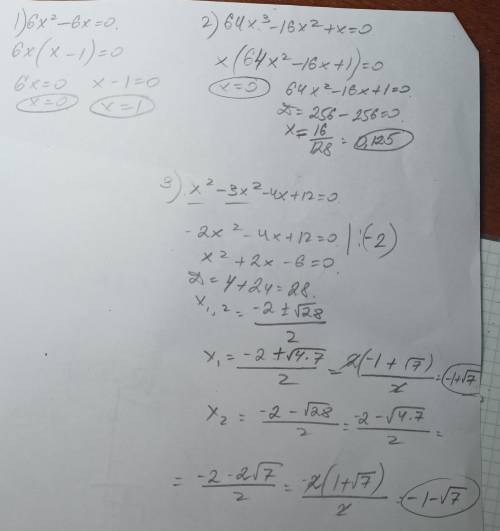 1) 6x² - 6x = 0.
6x(x - 1) = 0
6x = 0 x - 1 = 0
x = 0 x = 1
2) 64x³ - 16x² + x = 0
x(64x² - 16x + 1) = 0
x = 0 64x² - 16x + 1 = 0
D = 256 - 256 = 0.
x = 16/128 = 0,125
3) x² - 3x² - 4x + 12 = 0
-2x² - 4x + 12 = 0 | :(-2)
x² + 2x - 6 = 0.
D = 4 + 24 = 28.
x₁,₂ = (-2 ± √28)/2
x₁ = (-2 + √4·7)/2 = 2(-1 + √7)/2 = -1+√7
x₂ = (-2 - √28)/2 = (-2 - √4·7)/2 =
= (-2 - 2√7)/2 = -2(1 + √7)/2 = -1 - √7